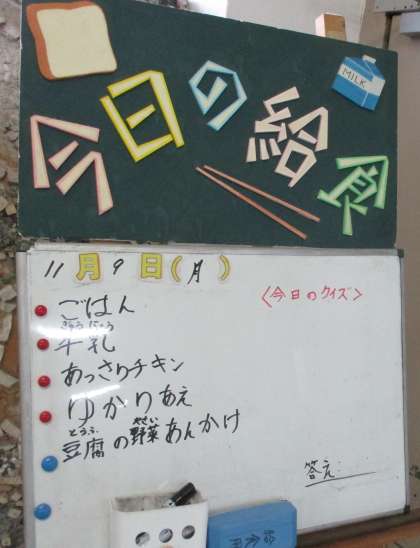 今日の給食
MILK
11月9日(月)
〈今日のクイズ〉
ごはん
ぎゅうにゅう
牛乳
あっさりチキン
ゆかりあえ
とうふ やさい
豆腐の野菜あんかけ
答え: